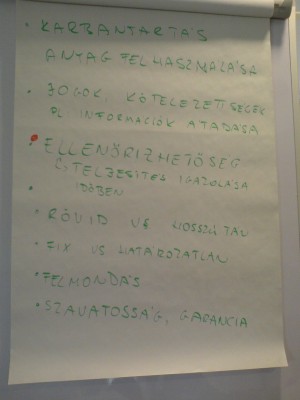 • KARBANTARTÁS
ANYAG FELHASZNÁLÁSA
• JOGOK, KÖTELEZETTSÉGEK
PL INFORMÁCIÓK ÁTADÁSA
• ELLENŐRIZHETŐSÉG
TELJESÍTÉS IGAZOLÁSA
IDŐBEN
• RÖVID VS HOSSZÚ TÁV
• FIX VS HATÁROZATLAN
• FELMONDÁS
• SZAVATOSSÁG, GARANCIA